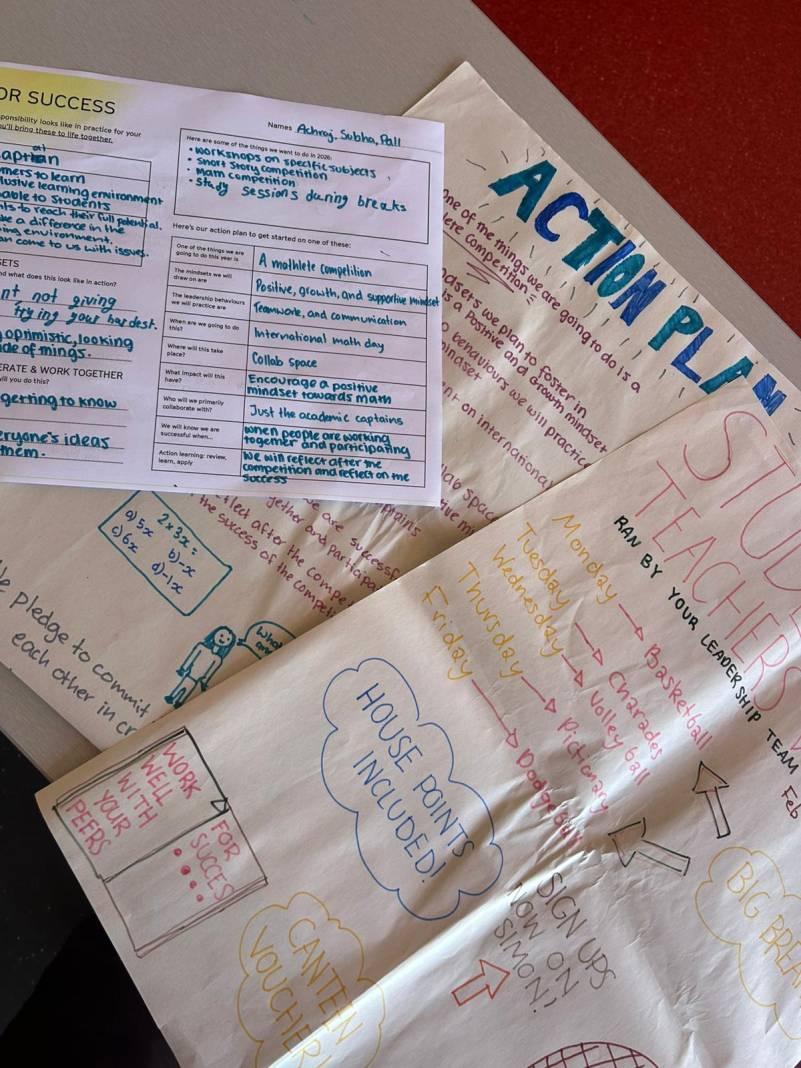 OR SUCCESS
ponsibility looks like in practice for your
ou'll bring these to life together.
at
captian
rners to learn
lusive learning environment
able to students
nts to reach their full potential.
ke a difference in the
ing environment.
an come to us with issues.
SETS
nd what does this look like in action?
nt not giving
trying your hardest.
optimistic, looking
ide of things.
ERATE & WORK TOGETHER
will you do this?
getting to know
eryone's ideas
them.
Names Achraj, Subha, Pall
Here are some of the things we want to do in 2026:
• Workshops on specific subjects
• Short story competition
• Math competition
• Study sessions during breaks
Here's our action plan to get started on one of these:
One of the things we are
going to do this year is
A mathlete competition
The mindsets we will
draw on are
Positive, growth, and supportive mindset
The leadership behaviours
we will practice are
Teamwork, and communication
When are we going to do
this?
International math day
Where will this take
place?
Collab space
What impact will this
have?
Encourage a positive
mindset towards math
Who will we primarily
collaborate with?
Just the academic captains
We will know we are
successful when...
when people are working
together and participating
Action learning: review,
learn, apply
We will reflect after the
competition and reflect on the
success
ACTION PLAN
one of the things we are going to do is a
lete competition
ndsets we plan to foster in
is a Positive and Growth mindset
behaviours we will practice
mindset
nt on international
llab space
ptains
e are successf
gether and participa
flect after the compe
the success of the competi
2x3x=
a) 5x b) -x
c) 6x d) -1x
What
are
e pledge to commit
each other in cr
STUD
TEACHERS V
RAN BY YOUR LEADERSHIP TEAM
Feb
Monday → Basketball
Tuesday → Charades
Wednesday → Volleyball
Thursday → Pictionary
Friday → Dodgeball
HOUSE POINTS
INCLUDED!
WORK
WELL
WITH
YOUR
PEERS
FOR
SUCCES
CANTEEN
VOUCHER!
SIGN UPS
NOW ON
SIMON!
BIG BREA